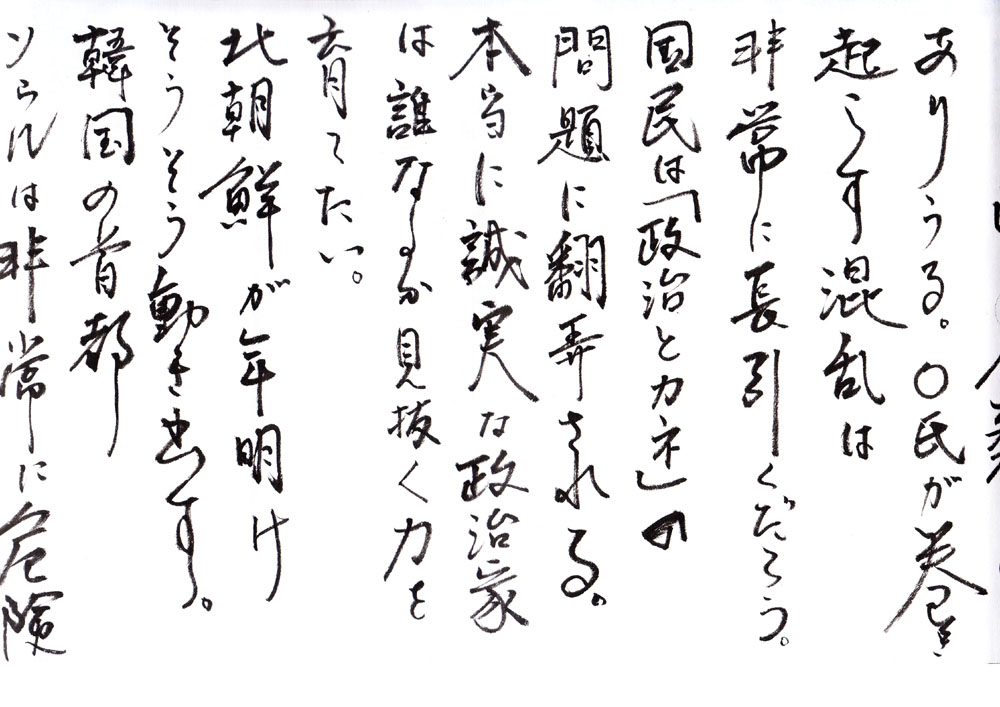 ありうる。〇氏が巻き
起こす混乱は
非常に長引くだろう。
国民は「政治とカネ」の
問題に翻弄される。
本当に誠実な政治家
は誰なるか見抜く力を
育てたい。
北朝鮮が年明け
そうそう動き出す。
韓国の首都
ソウルは非常に危険